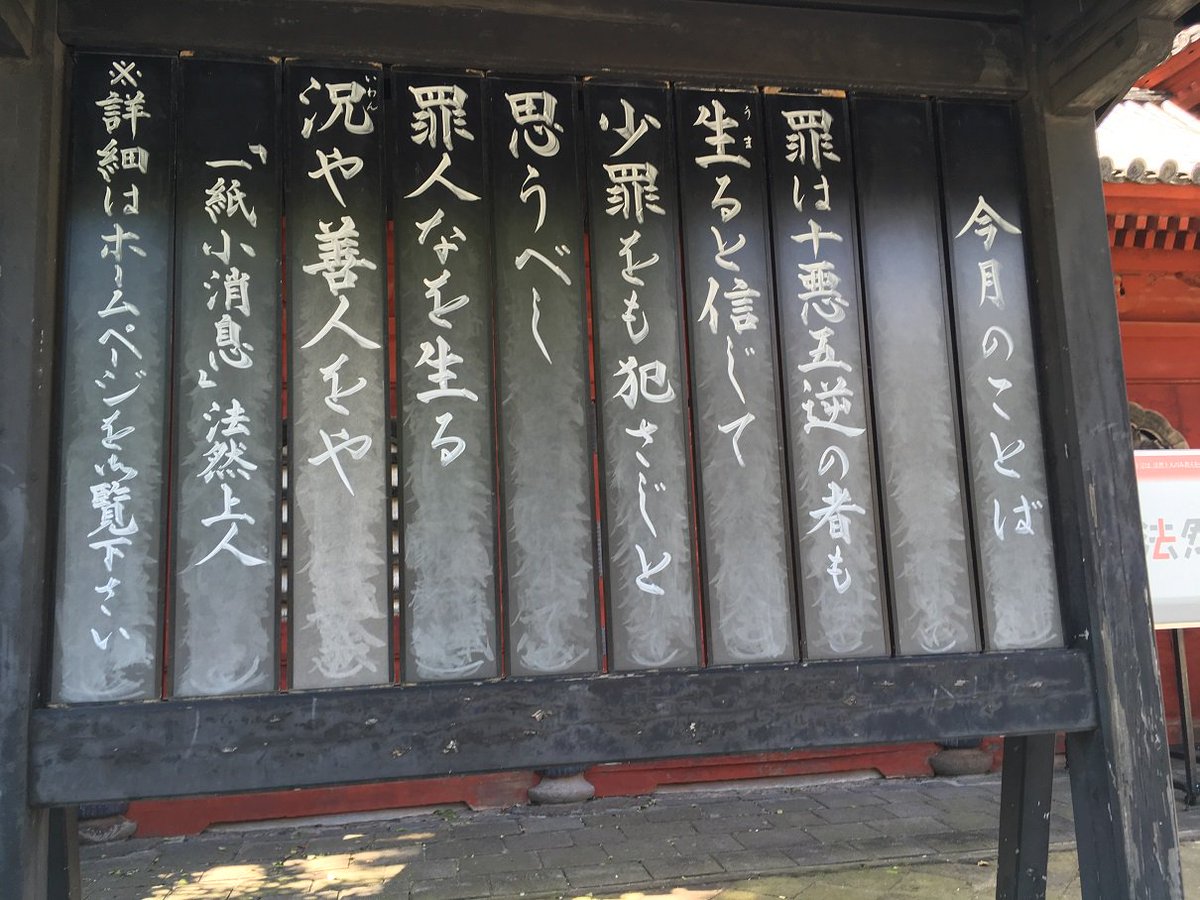 今月のことば
罪は十悪五逆の者も
生ると信じて
うま
少罪をも犯さじと
思うべし
罪人なを生る
況や善人をや
いわん
「一紙小消息」法然上人
※詳細はホームページを御覧下さい
法然